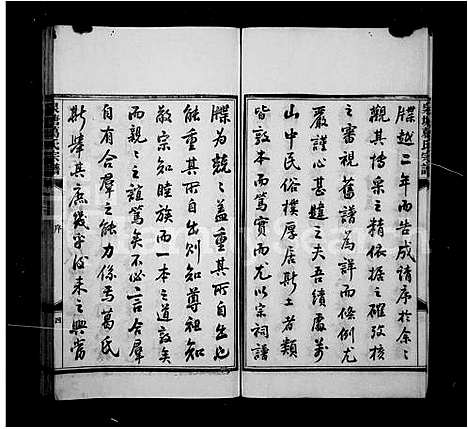 牒越二年而告成請序於余余
觀其摶采之精依據之確攷核
之審視舊譜為詳而條例尤
嚴謹心甚韙之夫吾績處萬
山中民俗樸厚居斯土者類
皆敦本而篤實而尤以宗祠譜
牒為兢兢益重其所自出也
能重其所自出則知尊祖知
敬宗知睦族而一本之道敦矣
而親親之誼篤矣不必言合羣
自有合羣之能力係焉葛氏
斯舉其庶幾乎後來之興當
葛氏宗譜
序
四